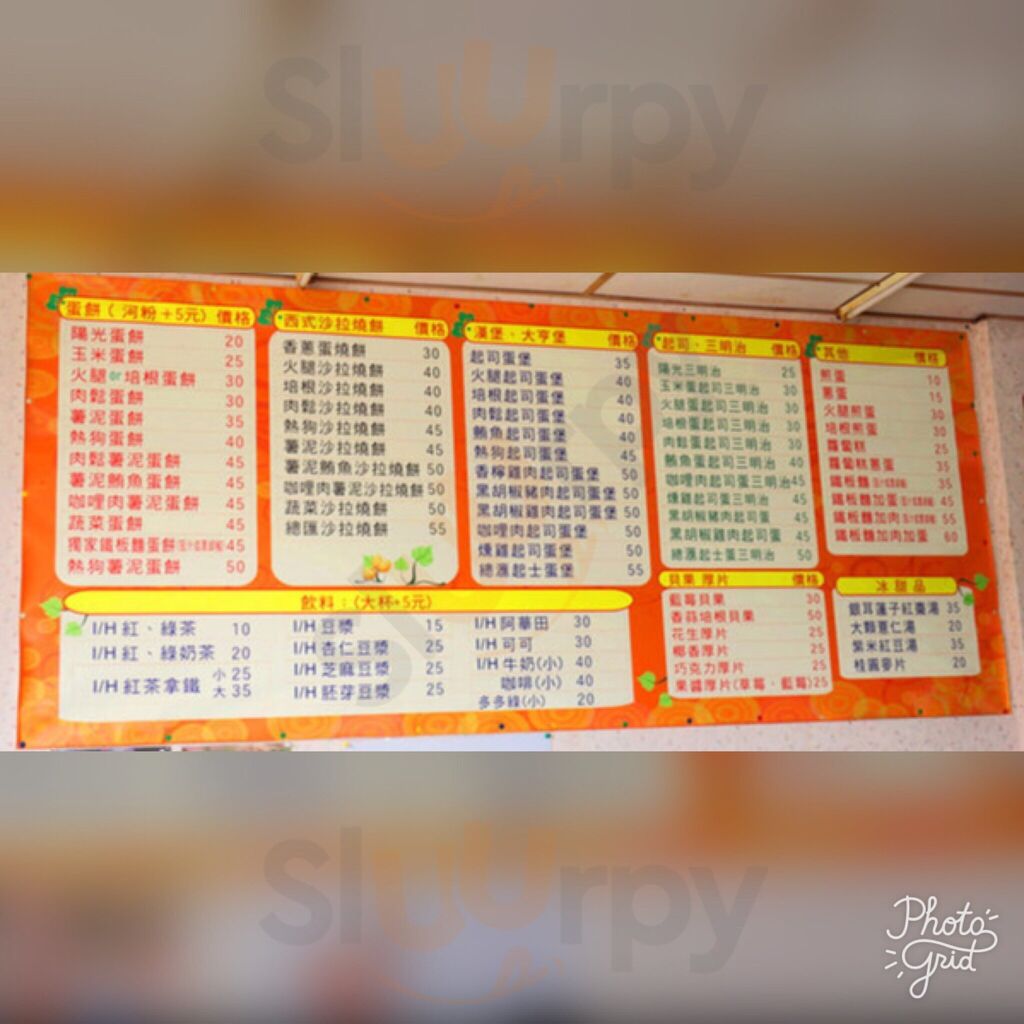 Sluurpy
蛋餅(河粉+5元) 價格
陽光蛋餅 20
玉米蛋餅 25
火腿or培根蛋餅 30
肉鬆蛋餅 30
薯泥蛋餅 35
熱狗蛋餅 40
肉鬆薯泥蛋餅 45
薯泥鮪魚蛋餅 45
咖哩肉薯泥蛋餅 45
蔬菜蛋餅 45
獨家鐵板麵蛋餅 45
熱狗薯泥蛋餅 50
西式沙拉燒餅 價格
香蔥蛋燒餅 30
火腿沙拉燒餅 40
培根沙拉燒餅 40
肉鬆沙拉燒餅 40
熱狗沙拉燒餅 45
薯泥沙拉燒餅 45
薯泥鮪魚沙拉燒餅 50
咖哩肉薯泥沙拉燒餅 50
蔬菜沙拉燒餅 50
總匯沙拉燒餅 55
漢堡、大亨堡 價格
起司蛋堡 35
火腿起司蛋堡 40
培根起司蛋堡 40
肉鬆起司蛋堡 40
鮪魚起司蛋堡 40
熱狗起司蛋堡 45
香檸雞肉起司蛋堡 50
黑胡椒豬肉起司蛋堡 50
黑胡椒雞肉起司蛋堡 50
咖哩肉起司蛋堡 50
燻雞起司蛋堡 50
總滙起士蛋堡 55
起司、三明治 價格
陽光三明治 25
玉米蛋起司三明治 30
火腿蛋起司三明治 30
培根蛋起司三明治 30
肉鬆蛋起司三明治 30
鮪魚蛋起司三明治 40
咖哩肉起司三明治 45
燻雞起司三明治 45
黑胡椒豬肉起司蛋 45
黑胡椒雞肉起司蛋 45
總滙起士蛋三明治 50
其他 價格
煎蛋 10
蔥蛋 15
火腿煎蛋 30
培根煎蛋 30
蘿蔔糕 25
蘿蔔糕蔥蛋 35
鐵板麵 35
鐵板麵加蛋 45
鐵板麵加肉 55
鐵板麵加肉加蛋 60
飲料:(大杯+5元)
I/H 紅、綠茶 10
I/H 紅、綠奶茶 20
I/H 紅茶拿鐵 小 25
大 35
I/H 豆漿 15
I/H 杏仁豆漿 25
I/H 芝麻豆漿 25
I/H 胚芽豆漿 25
I/H 阿華田 30
I/H 可可 30
I/H 牛奶(小) 40
咖啡(小) 40
多多綠(小) 20
貝果 厚片 價格
藍莓貝果 30
香蒜培根貝果 50
花生厚片 25
椰香厚片 25
巧克力厚片 25
果醬厚片(草莓、藍莓) 25
冰甜品
銀耳蓮子紅棗湯 35
大顆薏仁湯 20
紫米紅豆湯 35
桂圓麥片 20
Sluurpy
Photo
Grid